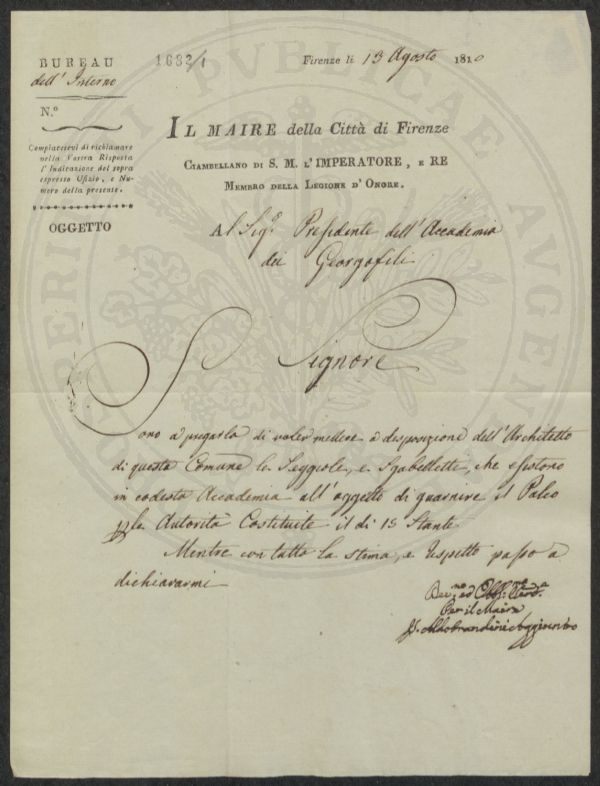 BUREAU
dell' Interno
1682/1
Firenze li 13 Agosto 1810
N.°
Compiacetevi di richiamare
nella Vostra Risposta
l'Indicazione del sopra
espresso Ufizio, e Nu-
mero della presente.
OGGETTO
IL MAIRE della Città di Firenze
CIAMBELLANO DI S. M. L'IMPERATORE, E RE
MEMBRO DELLA LEGIONE D'ONORE.
Al Sig.e Presidente dell'Accademia
dei Georgofili
Signore
Sono a pregarla di voler mettere a disposizione dell'Architetto
di questa Comune le Seggiole, e Sgabelletti, che esistono
in codesta Accademia all'oggetto di guarnire il Palco
p le Autorità Costituite il dì 15 Stante
Mentre con tutta la stima, e rispetto passo a
dichiararmi
Dev.mo ed Obb.
Per il Maire
Aldobrandini Aggiunto